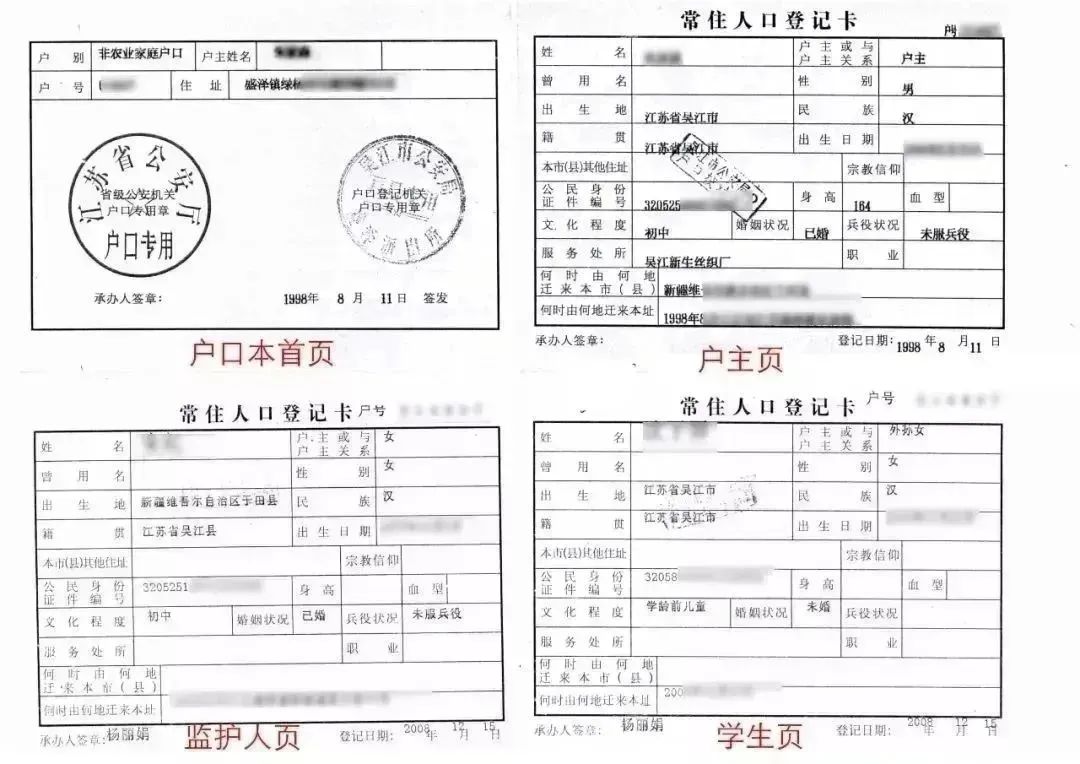 户别 非农业家庭户口 户主姓名
户号 住址 盛泽镇绿
江苏省公安厅
省级公安机关
户口专用章
户口专用
吴江市公安局
户口登记机关
户口专用章
派出所
承办人签章： 1998年 8 月 11 日 签发
户口本首页
常住人口登记卡
姓名 户主或与户主关系 户主
曾用名 性别 男
出生地 江苏省吴江市 民族 汉
籍贯 江苏省吴江市 出生日期
本市(县)其他住址 宗教信仰
公民身份证件编号 320525 身高 164 血型
文化程度 初中 婚姻状况 已婚 兵役状况 未服兵役
服务处所 吴江新生丝织厂 职业
何时由何地迁来本市(县) 新疆维
何时由何地迁来本址 1998年8
承办人签章： 登记日期：1998 年 8 月 11 日
户主页
常住人口登记卡 户号
姓名 户主或与户主关系 女
曾用名 性别 女
出生地 新疆维吾尔自治区于田县 民族 汉
籍贯 江苏省吴江县 出生日期
本市(县)其他住址 宗教信仰
公民身份证件编号 3205251 身高 血型
文化程度 初中 婚姻状况 已婚 兵役状况 未服兵役
服务处所 职业
何时由何地迁来本市(县)
何时由何地迁来本址
承办人签章：杨丽娟 登记日期：2008 年 12 月 15 日
监护人页
常住人口登记卡 户号
姓名 户主或与户主关系 外孙女
曾用名 性别 女
出生地 江苏省吴江市 民族 汉
籍贯 江苏省吴江市 出生日期
本市(县)其他住址 宗教信仰
公民身份证件编号 32058 身高 血型
文化程度 学龄前儿童 婚姻状况 未婚 兵役状况
服务处所 职业
何时由何地迁来本市(县)
何时由何地迁来本址 200
承办人签章：杨丽娟 登记日期：2008 年 12 月 15 日
学生页